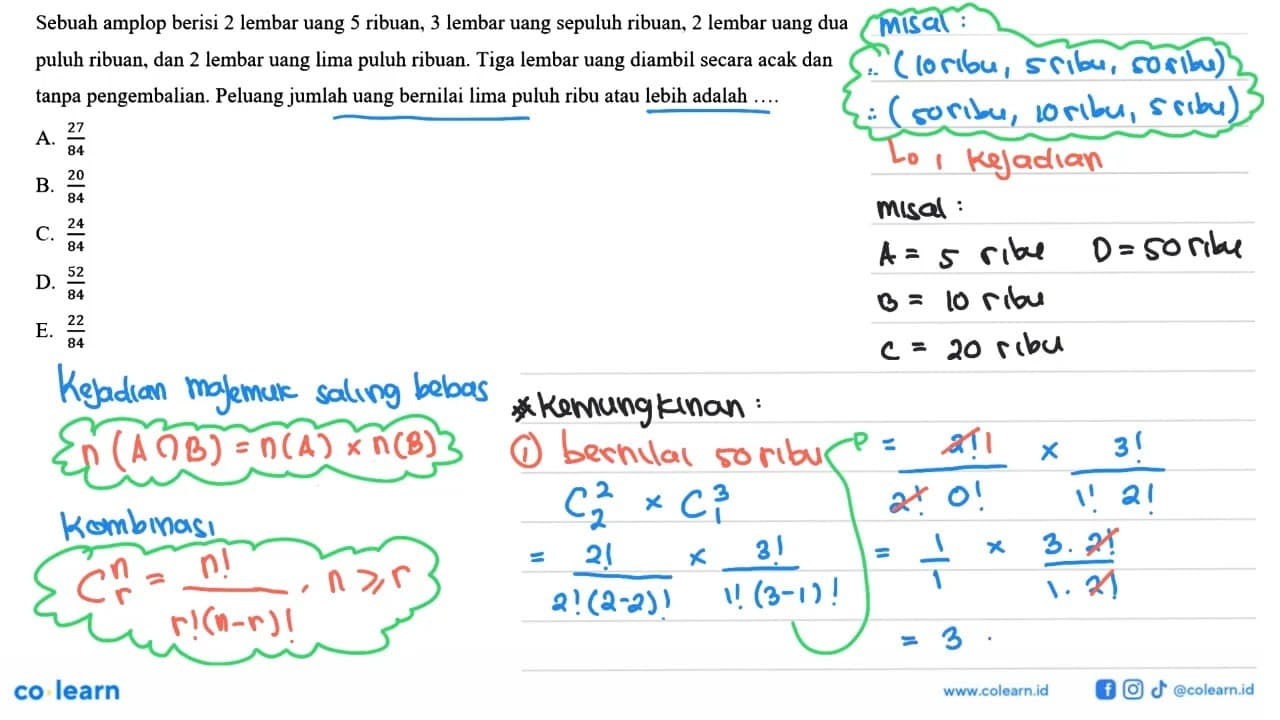 Sebuah amplop berisi 2 lembar uang 5 ribuan, 3 lembar uang sepuluh ribuan, 2 lembar uang dua
puluh ribuan, dan 2 lembar uang lima puluh ribuan. Tiga lembar uang diambil secara acak dan
tanpa pengembalian. Peluang jumlah uang bernilai lima puluh ribu atau lebih adalah ....
A. 27/84
B. 20/84
C. 24/84
D. 52/84
E. 22/84
misal :
∴ (10 ribu, 5 ribu, 50 ribu)
∴ (50 ribu, 10 ribu, 5 ribu)
↳ 1 kejadian
misal :
A = 5 ribu D = 50 ribu
B = 10 ribu
C = 20 ribu
Kejadian majemuk saling bebas
n (A ∩ B) = n(A) × n(B)
Kombinasi
C^n_r = n! / r!(n-r)! , n ≥ r
* Kemungkinan :
① bernilai 50 ribu
C^2_2 × C^3_1
= 2! / 2!(2-2)! × 3! / 1!(3-1)!
= 2! 1 / 2! 0! × 3! / 1! 2!
= 1/1 × 3. 2! / 1. 2!
= 3 .
co·learn
www.colearn.id
@colearn.id